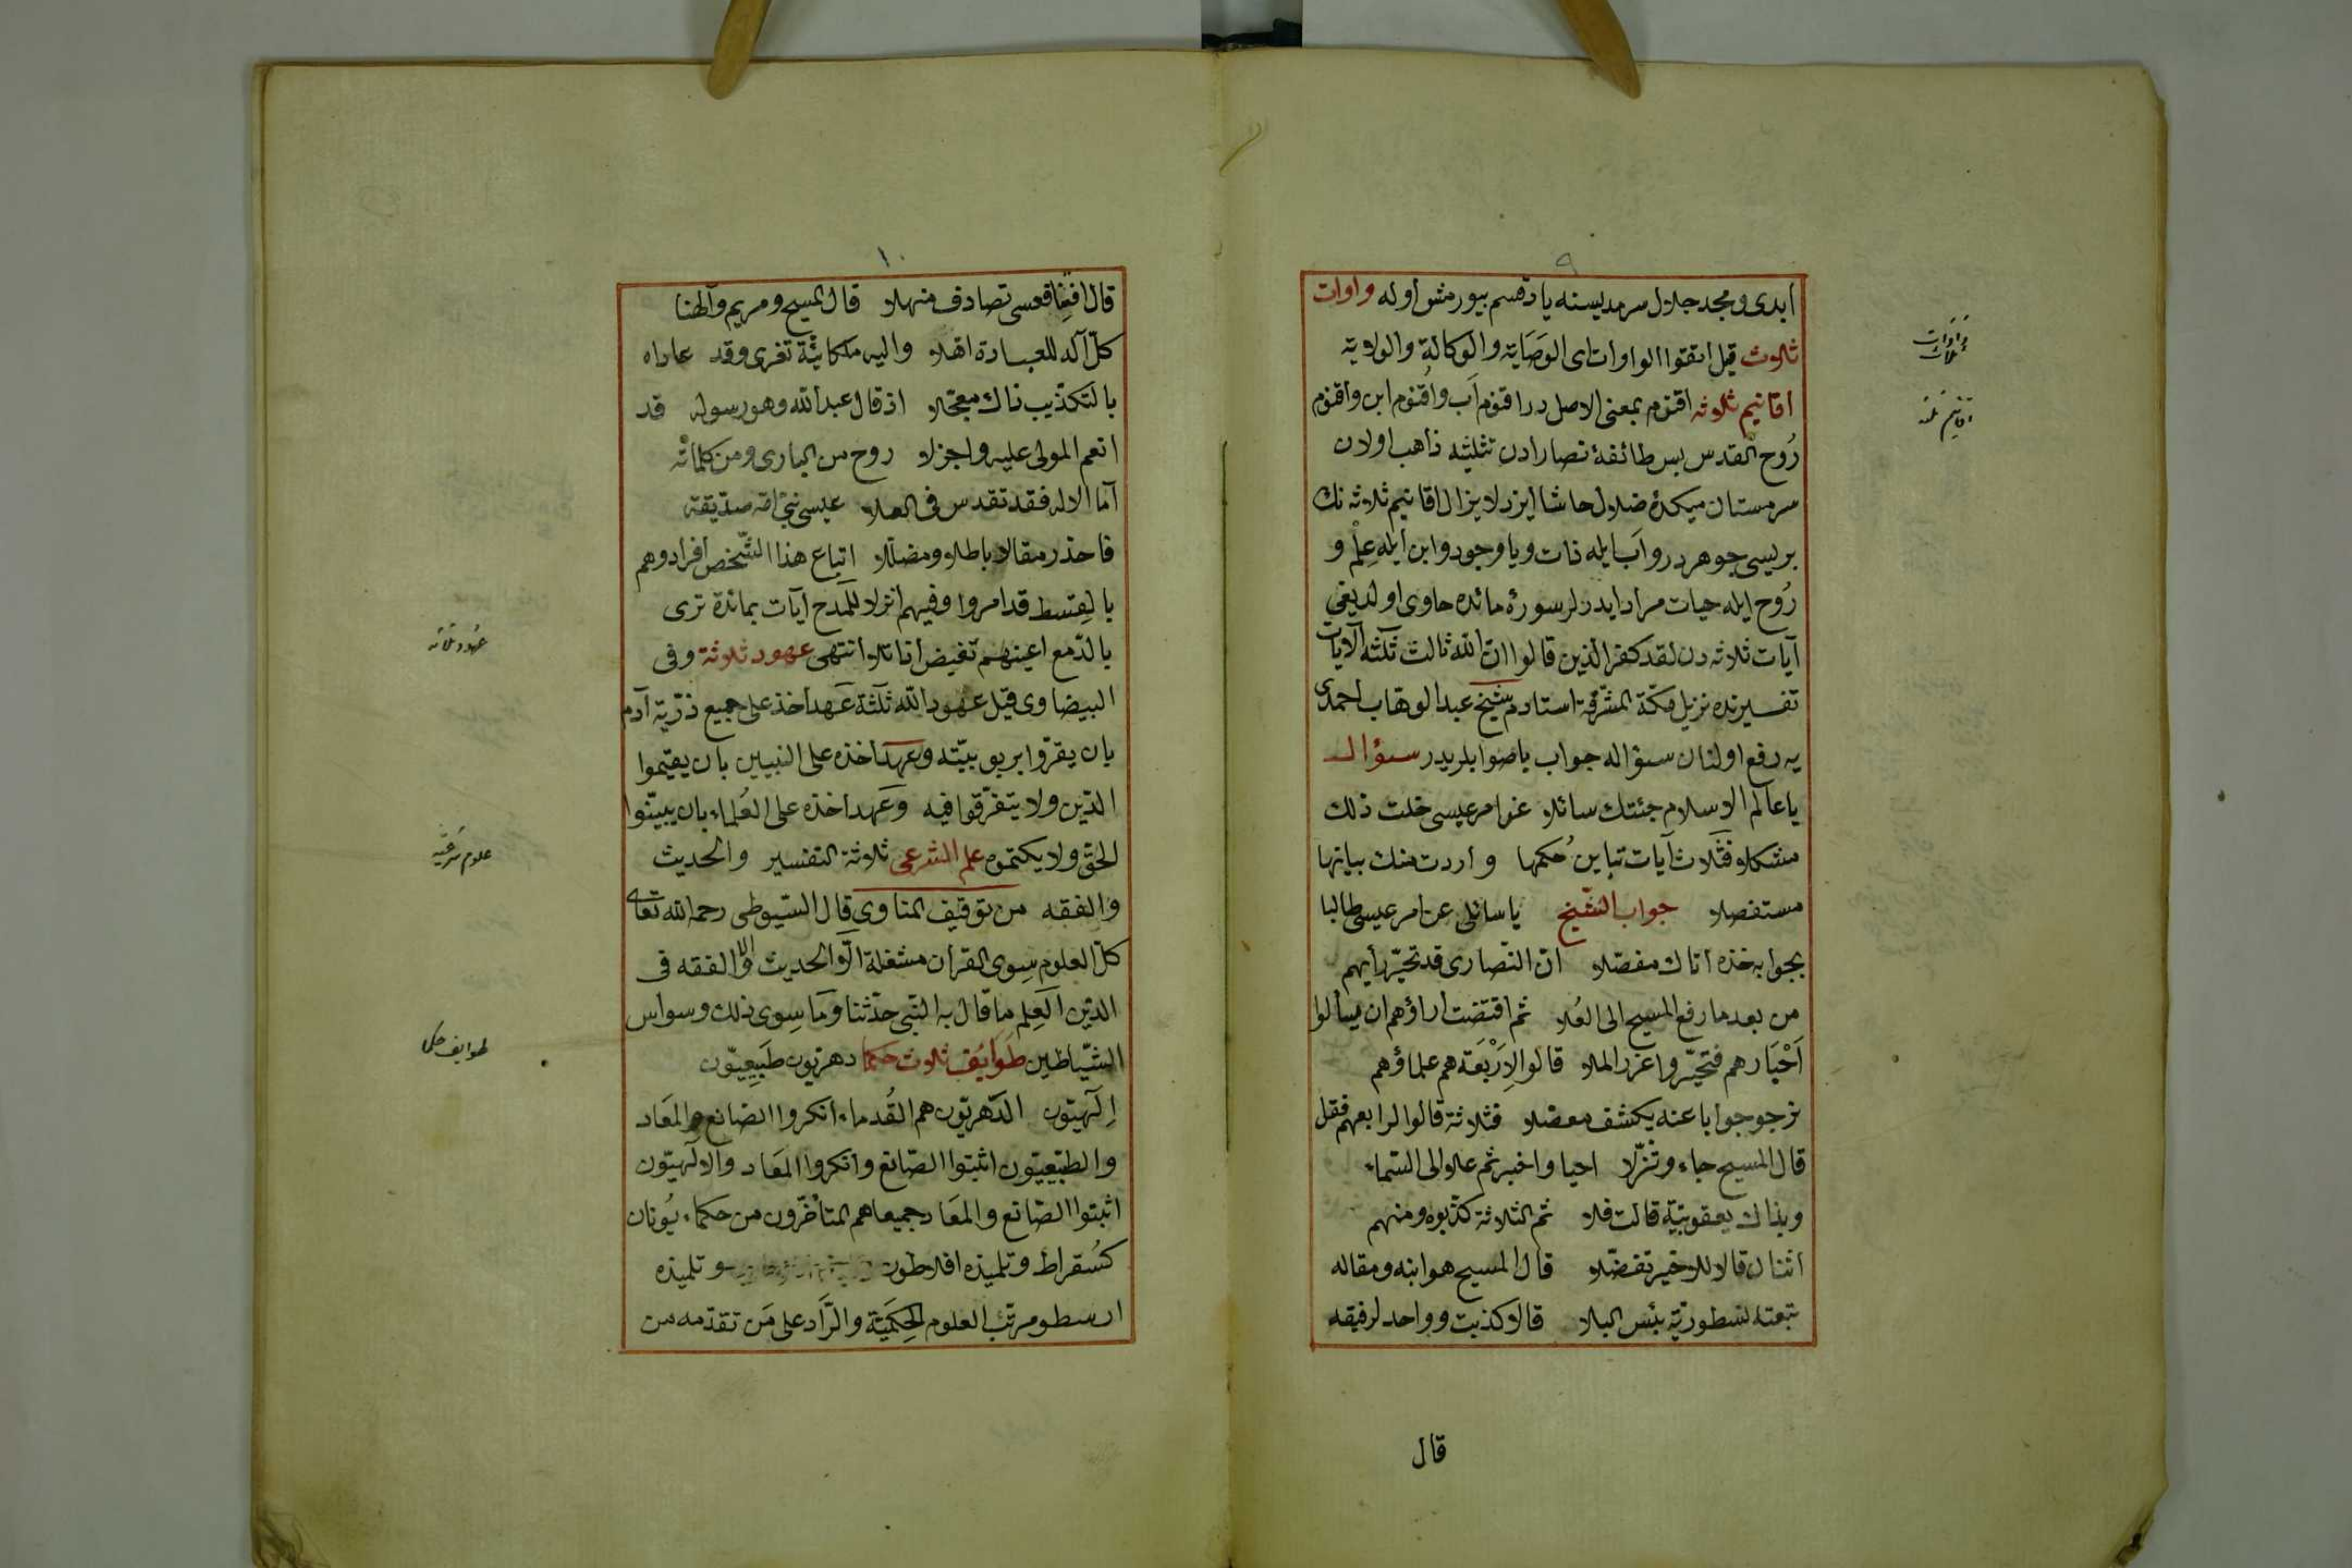 ٩
ابدی ومجد جلال سرمدیسنه یاد قسم بیورمش اوله واوات
ثلاوث قیل اتقوا الواوات ای الوَصَایَة والوکالة والولایة
اقانیم ثلاوثه اقنوم بمعنی الاصل در اقنوم اَب واُقنوم ابن واقنوم
رُوح القدس بس طائفهٔ نصارادن تثلیثه ذاهب اولان
سرمستان میکدهٔ ضلال حاشا ایزد لا یزال اقانیم ثلاوثه نك
بریسی جوهردر واَب ایله ذات ویا وجود وابن ایله عِلْم و
رُوح ایله حیات مراد ایدرلر سورهٔ مائده حاوی اولدیغی
آیات ثلاوثه دن لقد کفر الذین قالوا انّ الله ثالث ثلثه الآیات
تفسیرنده نزیل مکّة المشرّفة استادم شیخ عبد الوهاب احمدی
یه رفع اولنان سؤاله جواب باصوابلریدر سؤال
یا عالم الاسلام جئتك سائلا عن امر عیسی خلت ذلك
مشکلا فثلاث آیات تباین حُکمها واردت منك بیانها
مستفصلا جواب الشیخ یا سائلی عن امر عیسی طالبا
بجوابه خذه اتاك مفصّلا انّ النّصاری قد تحیّر رأیهم
من بعد ما رفع المسیح الی العُلا ثم اقتضت اراؤهم ان یسألوا
اَحْبَارهم فتحیّروا عزر الملا قالوا الاِرْبَعَة هم علماؤهم
نرجو جوابا عنه یکشف معضلا فثلاثة قالوا لرابعهم فقل
قال المسیح جاء وتنزّلا احیا واخبر ثم علا الی السّماء
وبذاك یعقوبیّة قالت فلا ثم الثلاثة کذّبوه ومنهم
اثنان قالا للاخیر تفضّلا قال المسیح هو ابنه ومقاله
تبعته نسطوریّة بئس البلا قالا کذبت وواحد لرفیقه
قال
واوات ثلاث
اقانیم ثلثه
١٠
قال افغنا فعسی تصادف منهلا قال المسیح ومریم والهنا
کلّ آله للعبادة اهلا والیه ملکانیّة تغری وقد عاداه
بالتکذیب ذاك معجّلا اذ قال عبد الله وهو رسوله قد
انعم المولی علیه واجزلا روح من الباری ومن کلماته
اما الاله فقد تقدس فی العلا عیسی نبیّ امّه صدّیقة
فاحذر مقالا باطلا ومضلّلا اتباع هذا الشّخص افراد وهم
بالقسط قد امروا وفیهم انزلا للمدح آیات بمائدة تری
بالدّمع اعینهم تفیض اذا تلا انتهی عهود ثلاوثة وفی
البیضاوی قیل عهود الله ثلثة عَهد اخذ علی جمیع ذرّیّة آدم
بان یقرّوا بربوبیّته وعهد اخذه علی النبیین بان یقیموا
الدّین ولا یتفرّقوا فیه وعَهد اخذه علی العُلماء بان یبیّنوا
الحقّ ولا یکتموه علم الشرعی ثلاوثة التفسیر والحدیث
والفقه من توقیف المناوی قال السّیوطی رحمه الله تعالی
کلّ العلوم سِوی القرأن مشغلة الّا الحدیث والّا الفقه فی
الدّین العِلم ما قال به النّبی حدّثنا وَمَا سِوی ذلك وسواس
الشّیاطین طَوایُف ثلاوث حکما دهریّون طَبیعِیّون
اِلٰهیّون الدّهریّون هم القُدماء انکروا الصّانع والمَعَاد
والطّبیعیّون اثبتوا الصّانع وانکروا المَعَاد والالٰهیّون
اثبتوا الصّانع والمَعَاد جمیعا هم المتأخّرون من حکماء یُونان
کسُقراط وتلمیذه افلاطون وتلمیذه
ارسطو مرتّب العلوم الحِکَمیّة والرّاد علی مَن تقدّمه من
عهود ثلاثه
علوم شرعیّه
طوایف حکما